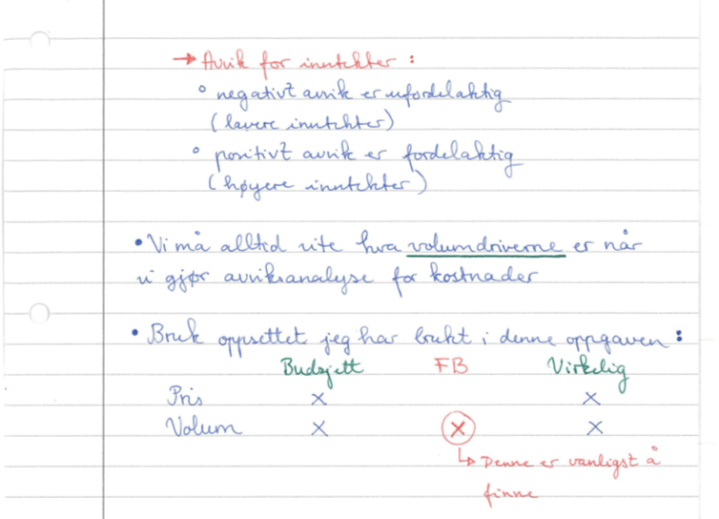 → Avvik for inntekter :
° negativt avvik er ufordelaktig
( lavere inntekter )
° positivt avvik er fordelaktig
( høyere inntekter )
• Vi må alltid vite hva volumdriverne er når
vi gjør avviksanalyse for kostnader
• Bruk oppsettet jeg har brukt i denne oppgaven :
Budsjett FB Virkelig
Pris × ×
Volum × × ×
↳ Denne er vanligst å
finne